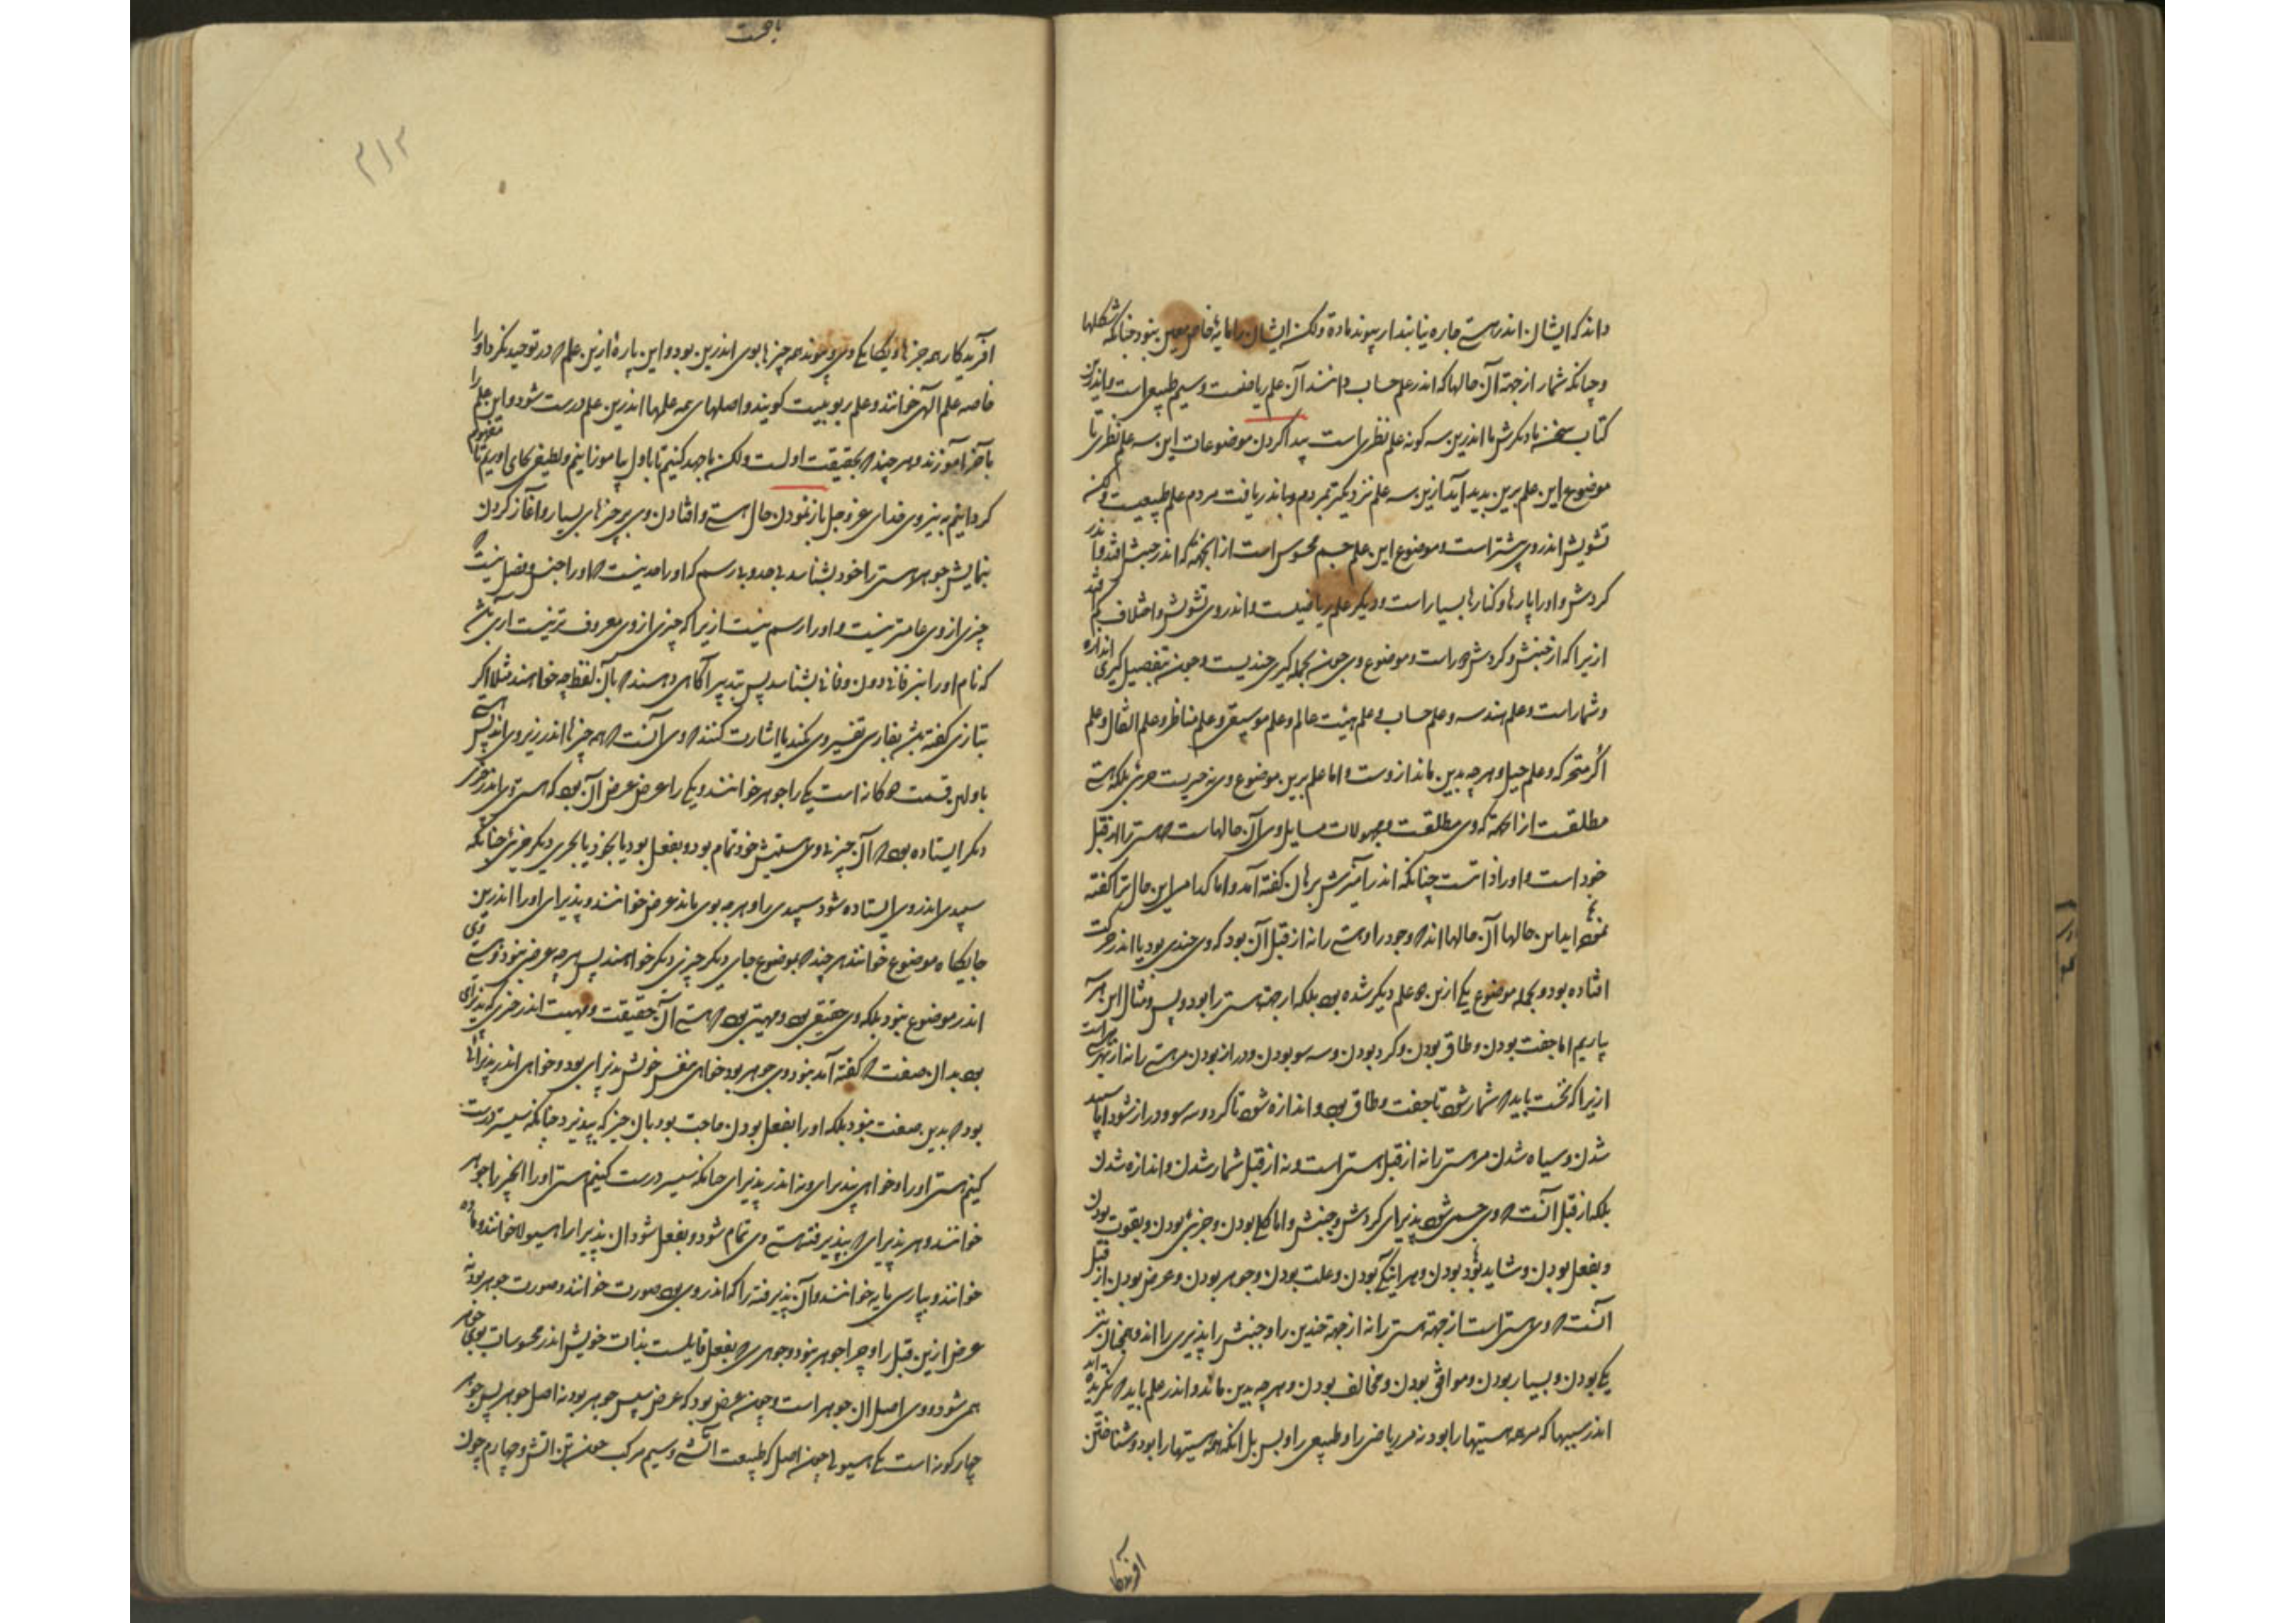 داند که ایشان اندر هستی چاره نیابند از پیوند ماده ولکن ایشان را مایهٔ خاص معین نبود چنانکه شکلها
و چنانکه شمار از جهة آن حالها که اندر علم حساب دانند آن علم ریاضیست و سیم طبیعی است و اندرین
کتاب سخن ما و نگرش ما اندرین سه گونه علم نظری است پیدا کردن موضوعات این سه علم نظری تا
موضوع این علم برین پدید آید ازین سه علم نزدیکتر بمردم و باندر یافت مردم علم طبیعیست ولکن
تشویش اندر وی بیشتر است و موضوع این علم جسم محسوس است از آنجهة که اندر جنبش افتد و اندر
گردش و اورا پارها و کنارها بسیار است و دیگر علم ریاضیست و اندر وی تشویش و اختلاف کم افتد
ازیرا که از جنبش و گردش دور است و موضوع وی چون بجمله گیری چندیست و چون بتفصیل گیری اندازه
و شمار است و علم هندسه و علم حساب و علم هیئت عالم و علم موسیقی و علم مناظر و علم اثقال و علم
اکر متحرکه و علم حیل و هر چه بدین ماند ازوست و اما علم برین موضوع وی نه چیزیست جزئی بلکه هستی
مطلقست از انجهة که وی مطلقست و محمولات مسایل وی آن حالهاست که هستی را از قبل
خود است و اورا ذاتیست چنانکه اندر آمیزش برهان گفته آمد و اما کدامند این حال ترا گفته
اید این حالها آن حالها اند که وجود را و هستی را نه از قبل آن بود که وی چندی بود یا اندر حرکت
افتاده بود و بجمله موضوع یکی ازین دو علم دیگر شده بود بلکه از جهة هستی را بود و بس و مثال این هر سه
بیاریم اما جفت بودن و طاق بودن و گرد بودن و سه سو بودن و دراز بودن مر هستی را نه از بهر هستی است
ازیرا که نخست باید که شمار شود تا جفت و طاق بود و اندازه شود تا گرد و سه سو و دراز شود اما سپید
شدن و سیاه شدن مر هستی را نه از قبل هستی است و نه از قبل شمار شدن و اندازه شدن
بلکه از قبل آنست که وی جسمی شود پذیرای گردش و جنبش و اما کلی بودن و جزئی بودن و بقوت بودن
و بفعل بودن و شاید بود بودن و هر آینگی بودن و علت بودن و جوهر بودن و عرض بودن از قبل
آنست که وی هستی است از جهة هستی را نه از جهة چندی را و جنبش را پذیری را اند و همچنان نیز
یکی بودن و بسیار بودن و موافق بودن و مخالف بودن و هر چه بدین ماند و اندر علم باید که نگریده اید
اندر سببها که مر همه هستیها را بود نه مر ریاضی را و طبیعی را و بس بل انکه همه هستیها را بود و شناختن
افریدکار
یافت
آفریدکار همه چیزها و یگانگی وی و پیوند همه چیزها بوی اندرین بود و این پارهٔ ازین علم که در توحید نگرد او را
خاصه علم الهی خوانند و علم ربوبیت گویند و اصلهای همه علمها اندرین علم درست شود و این علم را
بآخر آموزند و هر چند که بحقیقت اولست ولکن ما جهد کنیم تا باول بیاموزانیم و لطیفی بجای آوریم تا مفهوم
گردانیم به نیروی خدای عز و جل باز نمودن حال هستی و افتادن وی بر چیزهای بسیار و آغاز کردن
بنمایش جوهر هستی را خود بشناسد بی حد و بی رسم که او را حد نیست که او را جنس و فصل نیست
چیزی از وی عامتر نیست و او را رسم نیست ازیرا که چیزی از وی معروف تر نیست آری باشد
که نام او را بزفانی دون زفانی بشناسد پس بتدبیر آگاهی دهند که بآن لفظ چه خواهند مثلا اگر
بتازی گفته باشد بفارسی تفسیر وی کنند یا اشارت کنند که وی آنست که همه چیزها اندر زیر وی اند پس هستی
باولین قسمت دو گانه است یکی را جوهر خوانند و یکی را عرض عرض آن بود که هستی وی اندر چیزی
دیگر ایستاده بود که آن چیز بی وی هستیش خود تمام بود و بفعل بود یا بخود یا بچیزی دیگر جزوی چنانکه
سپیدی اندر وی ایستاده شود سپیدی را و هر چه بوی ماند عرض خوانند و پذیرای او را اندرین
جایگاه موضوع خوانند هر چند که بموضوع جای دیگر چیزی دیگر خواهند پس هر چه عرض نبود و هستی وی
اندر موضوع نبود بلکه وی حقیقتی بود و مهیتی بود که هستی آن حقیقت و مهیت اندر چیزی که پذیرای
بود بدان صفت که گفته آمد نبود وی جوهر بود خواهی بنفس خویش پذیرای بود و خواهی اندر پذیرائی
بود که بدین صفت نبود بلکه او را بفعل بودن حاجت بود بآن چیز که بپذیرد چنانکه سپستر درست
کنیم هستی او را و خواهی نه پذیرای و نه اندر پذیرای چنانکه سپستر درست کنیم هستی او را اینچیز را جوهر
خوانند و هر پذیرای که بپذیرفته هستی وی تمام شود و بفعل شود آن پذیرا را هیولا خوانند و ماده
خوانند و بپارسی مایه خوانند و آن پذیرفته را که اندر وی بود صورت خوانند و صورت جوهر بود نه
عرض ازین قبل را و چرا جوهر نبود و جوهری که بفعل قایمست بذات خویش اندر محسوسات بوی جوهر
همی شود و وی اصل آن جوهر است و چون عرض بود که عرض سپس جوهر بود نه اصل جوهر پس جوهر
چهار گونه است یکی هیولی چون اصل که طبیعت آتشی و سیم مرکب چون تن آتش و چهارم چون